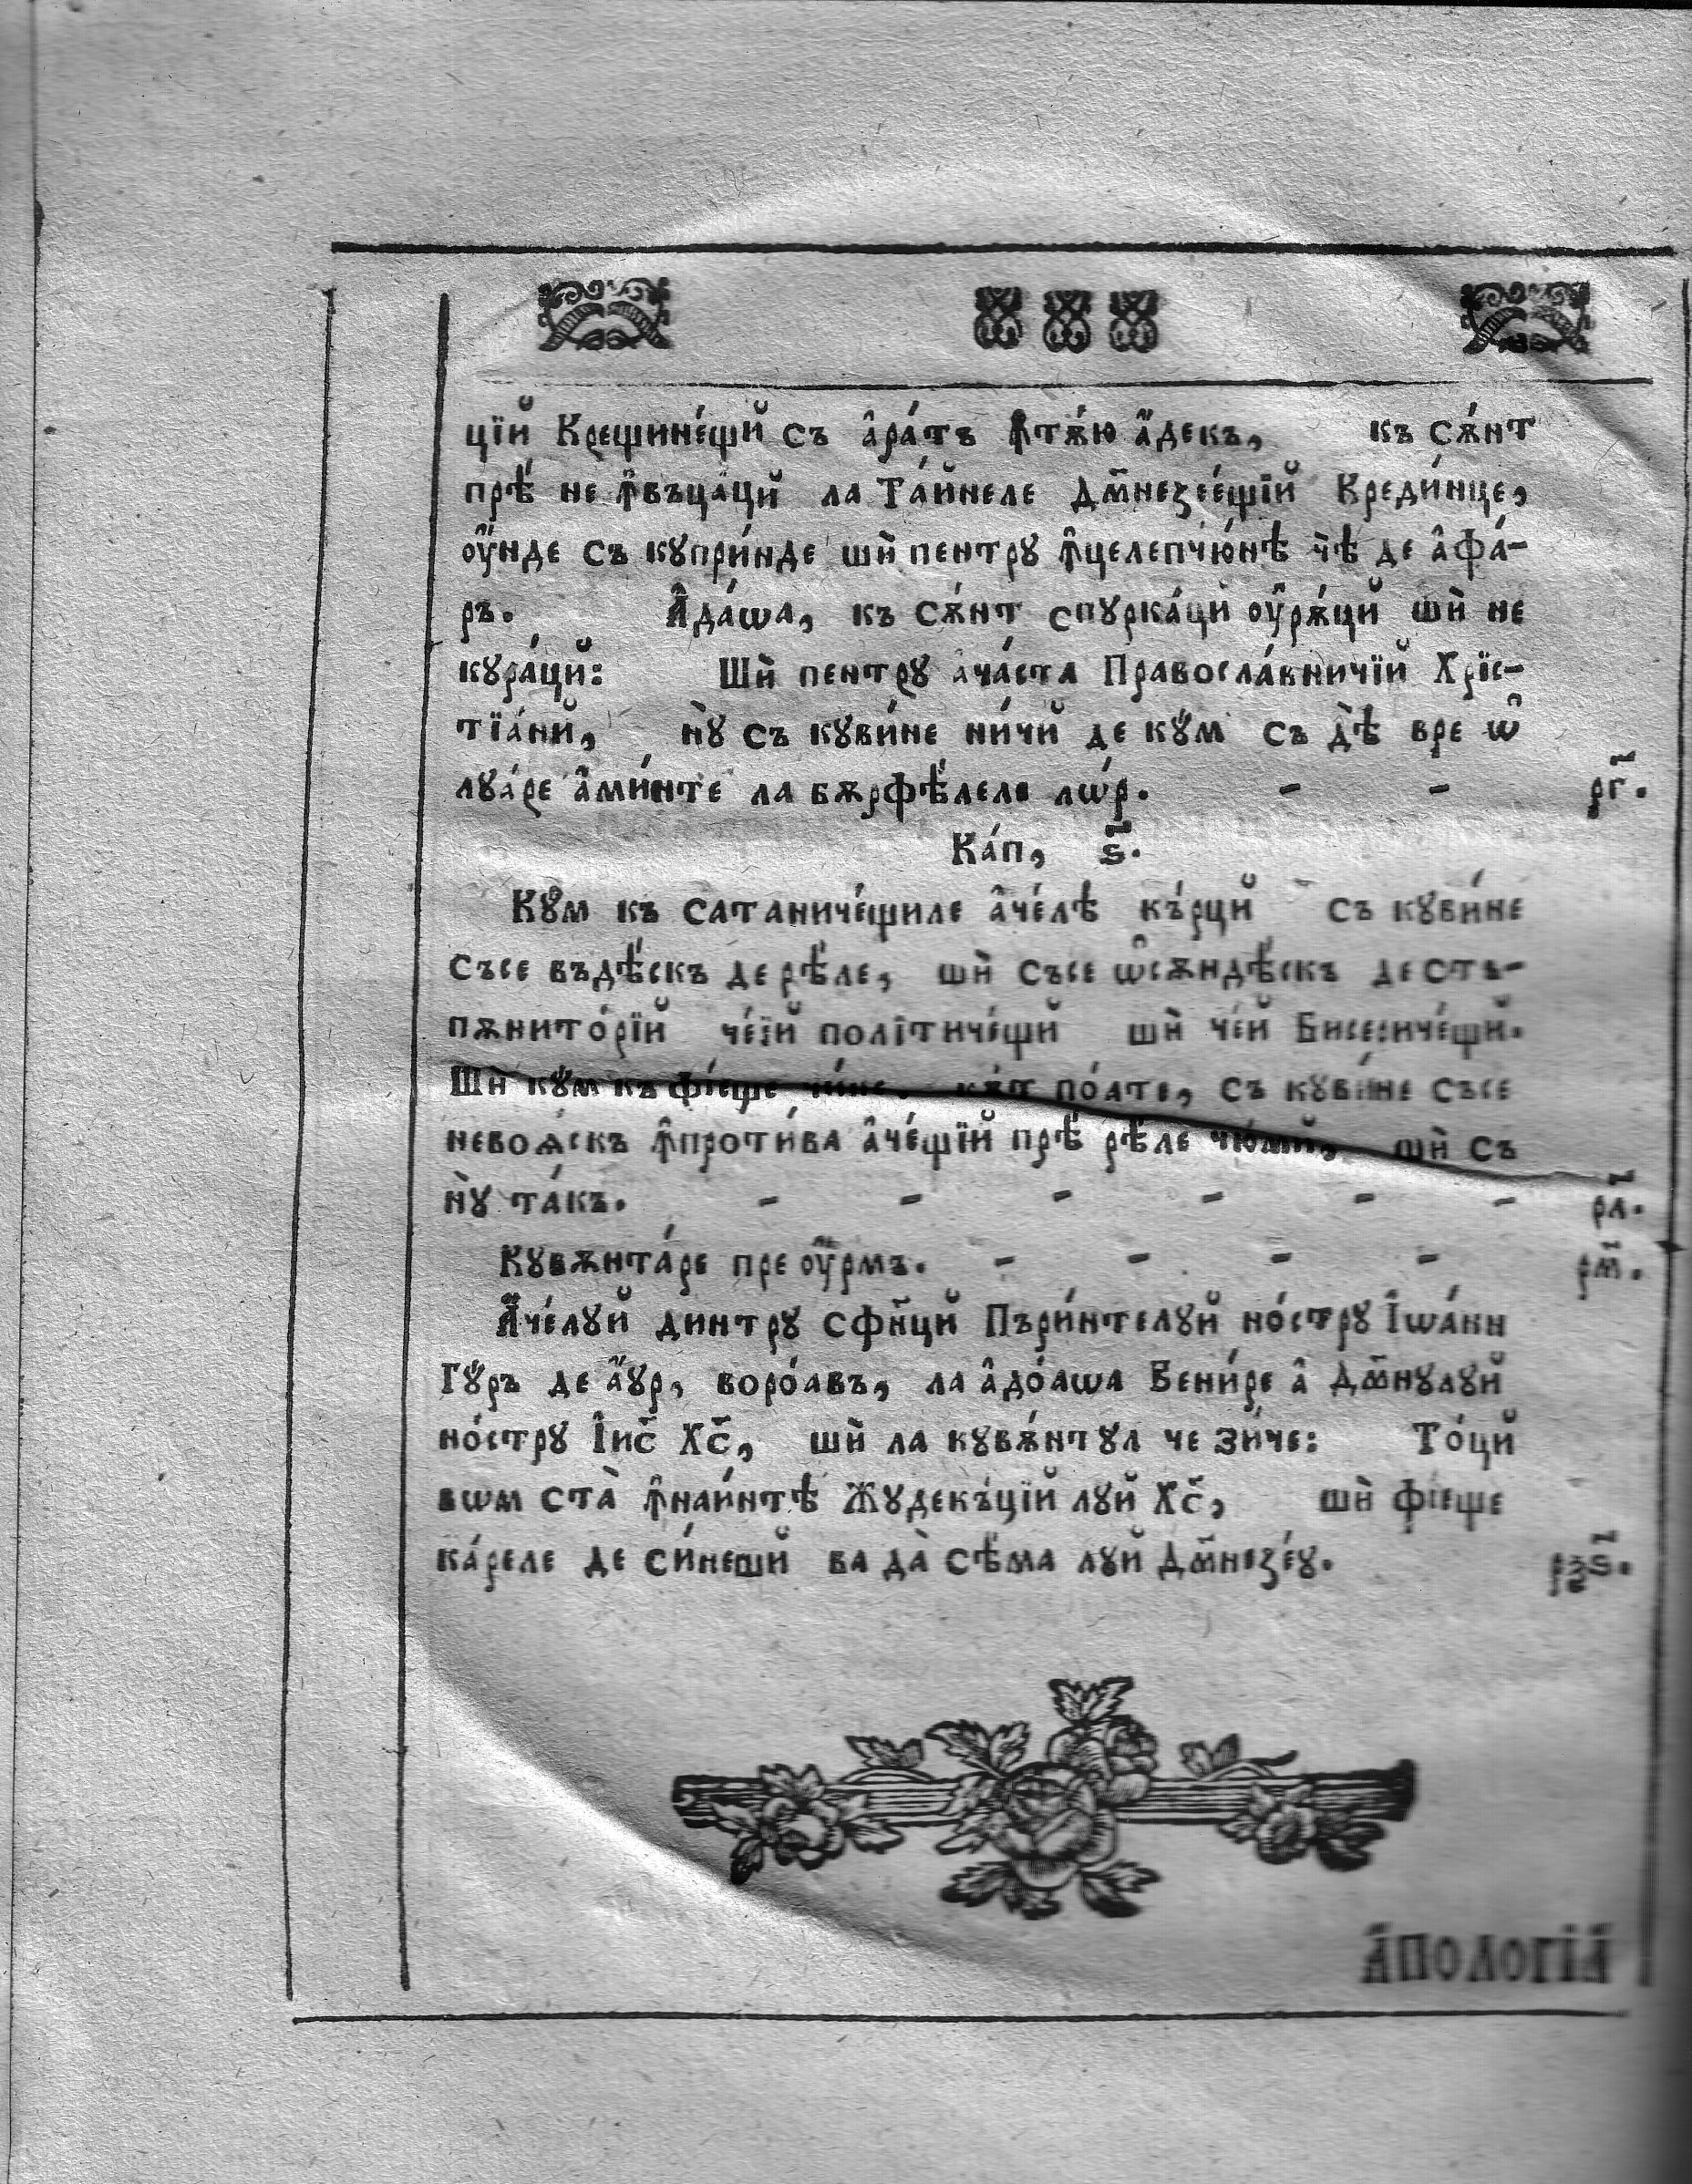 цїй Крещинещй съ а҆ра́тъ ꙟ҆тѫ́ю а҆́декъ, къ сѫ́нт
прѣ не ꙟ҆въца́цй ла Та́йнеле Дм҃незее́щїй Креди́нце,
ѹ҆́нде съ купри́нде шѝ пентру ꙟ҆целепчю́нѣ чѣ̀ де а҆фа́-
ръ. А҆да́ѡа, къ сѫ́нт спурка́цй ѹ҆рѫ́цй шѝ не
кура́цй: Шѝ пентрꙋ а҆ча́ста Правосла́вничїй Хрїс-
тїа́нй, нꙋ̀ съ кꙋви́не ни́чй де кꙋ́м съ дѣ̀ вре ѡ҆
лꙋа́ре а҆ми́нте ла бѫрфѣ́леле лѡ́р. - - рг҃.
Ка́п, ѕ҃.
Кꙋ́м къ сатаниче́щиле а҆че́лѣ къ́рци съ кꙋви́не
съсе въдѣ́скъ де рѣ́ле, шѝ съсе ѡ҆сѫндѣ́скъ де стъ-
пѫнито́рїй че́їй полїтиче́щй шѝ че́й Бисериче́щй.
Шѝ кꙋ́м къ фїеще чи́не кѫ́т по́ате, съ кꙋви́не съсе
невоѧ́скъ ꙟ҆проти́ва а҆че́щїй прѣ рѣ́ле чю́мй, шѝ съ
нꙋ̀ та́къ. - - - - - - рл҃.
Кꙋвѫнта́ре пре ѹ҆́рмъ. - - - - рм҃.
А҆че́лꙋй динтрꙋ сфи҃цй Пъри́нтелꙋй но́стрꙋ І҆ѡа́нн
Гꙋ́ръ де а҆́ꙋр, воро́авъ, ла а҆до́аѡа Вени́ре а҆ Дм҃нꙋлꙋй
но́стрꙋ І҆ис҃ Хс҃, шѝ ла кꙋвѫ́нтꙋл че зи́че: То́цй
вѡм ста̀ ꙟ҆наи́нтѣ Жꙋдекъ́цїй лꙋй Хс҃, шѝ фїеще
ка́реле де си́нешй ва да̀ сѣ́ма лꙋй Дм҃незе́ꙋ. рѯѕ҃.
А҆пологїа҆